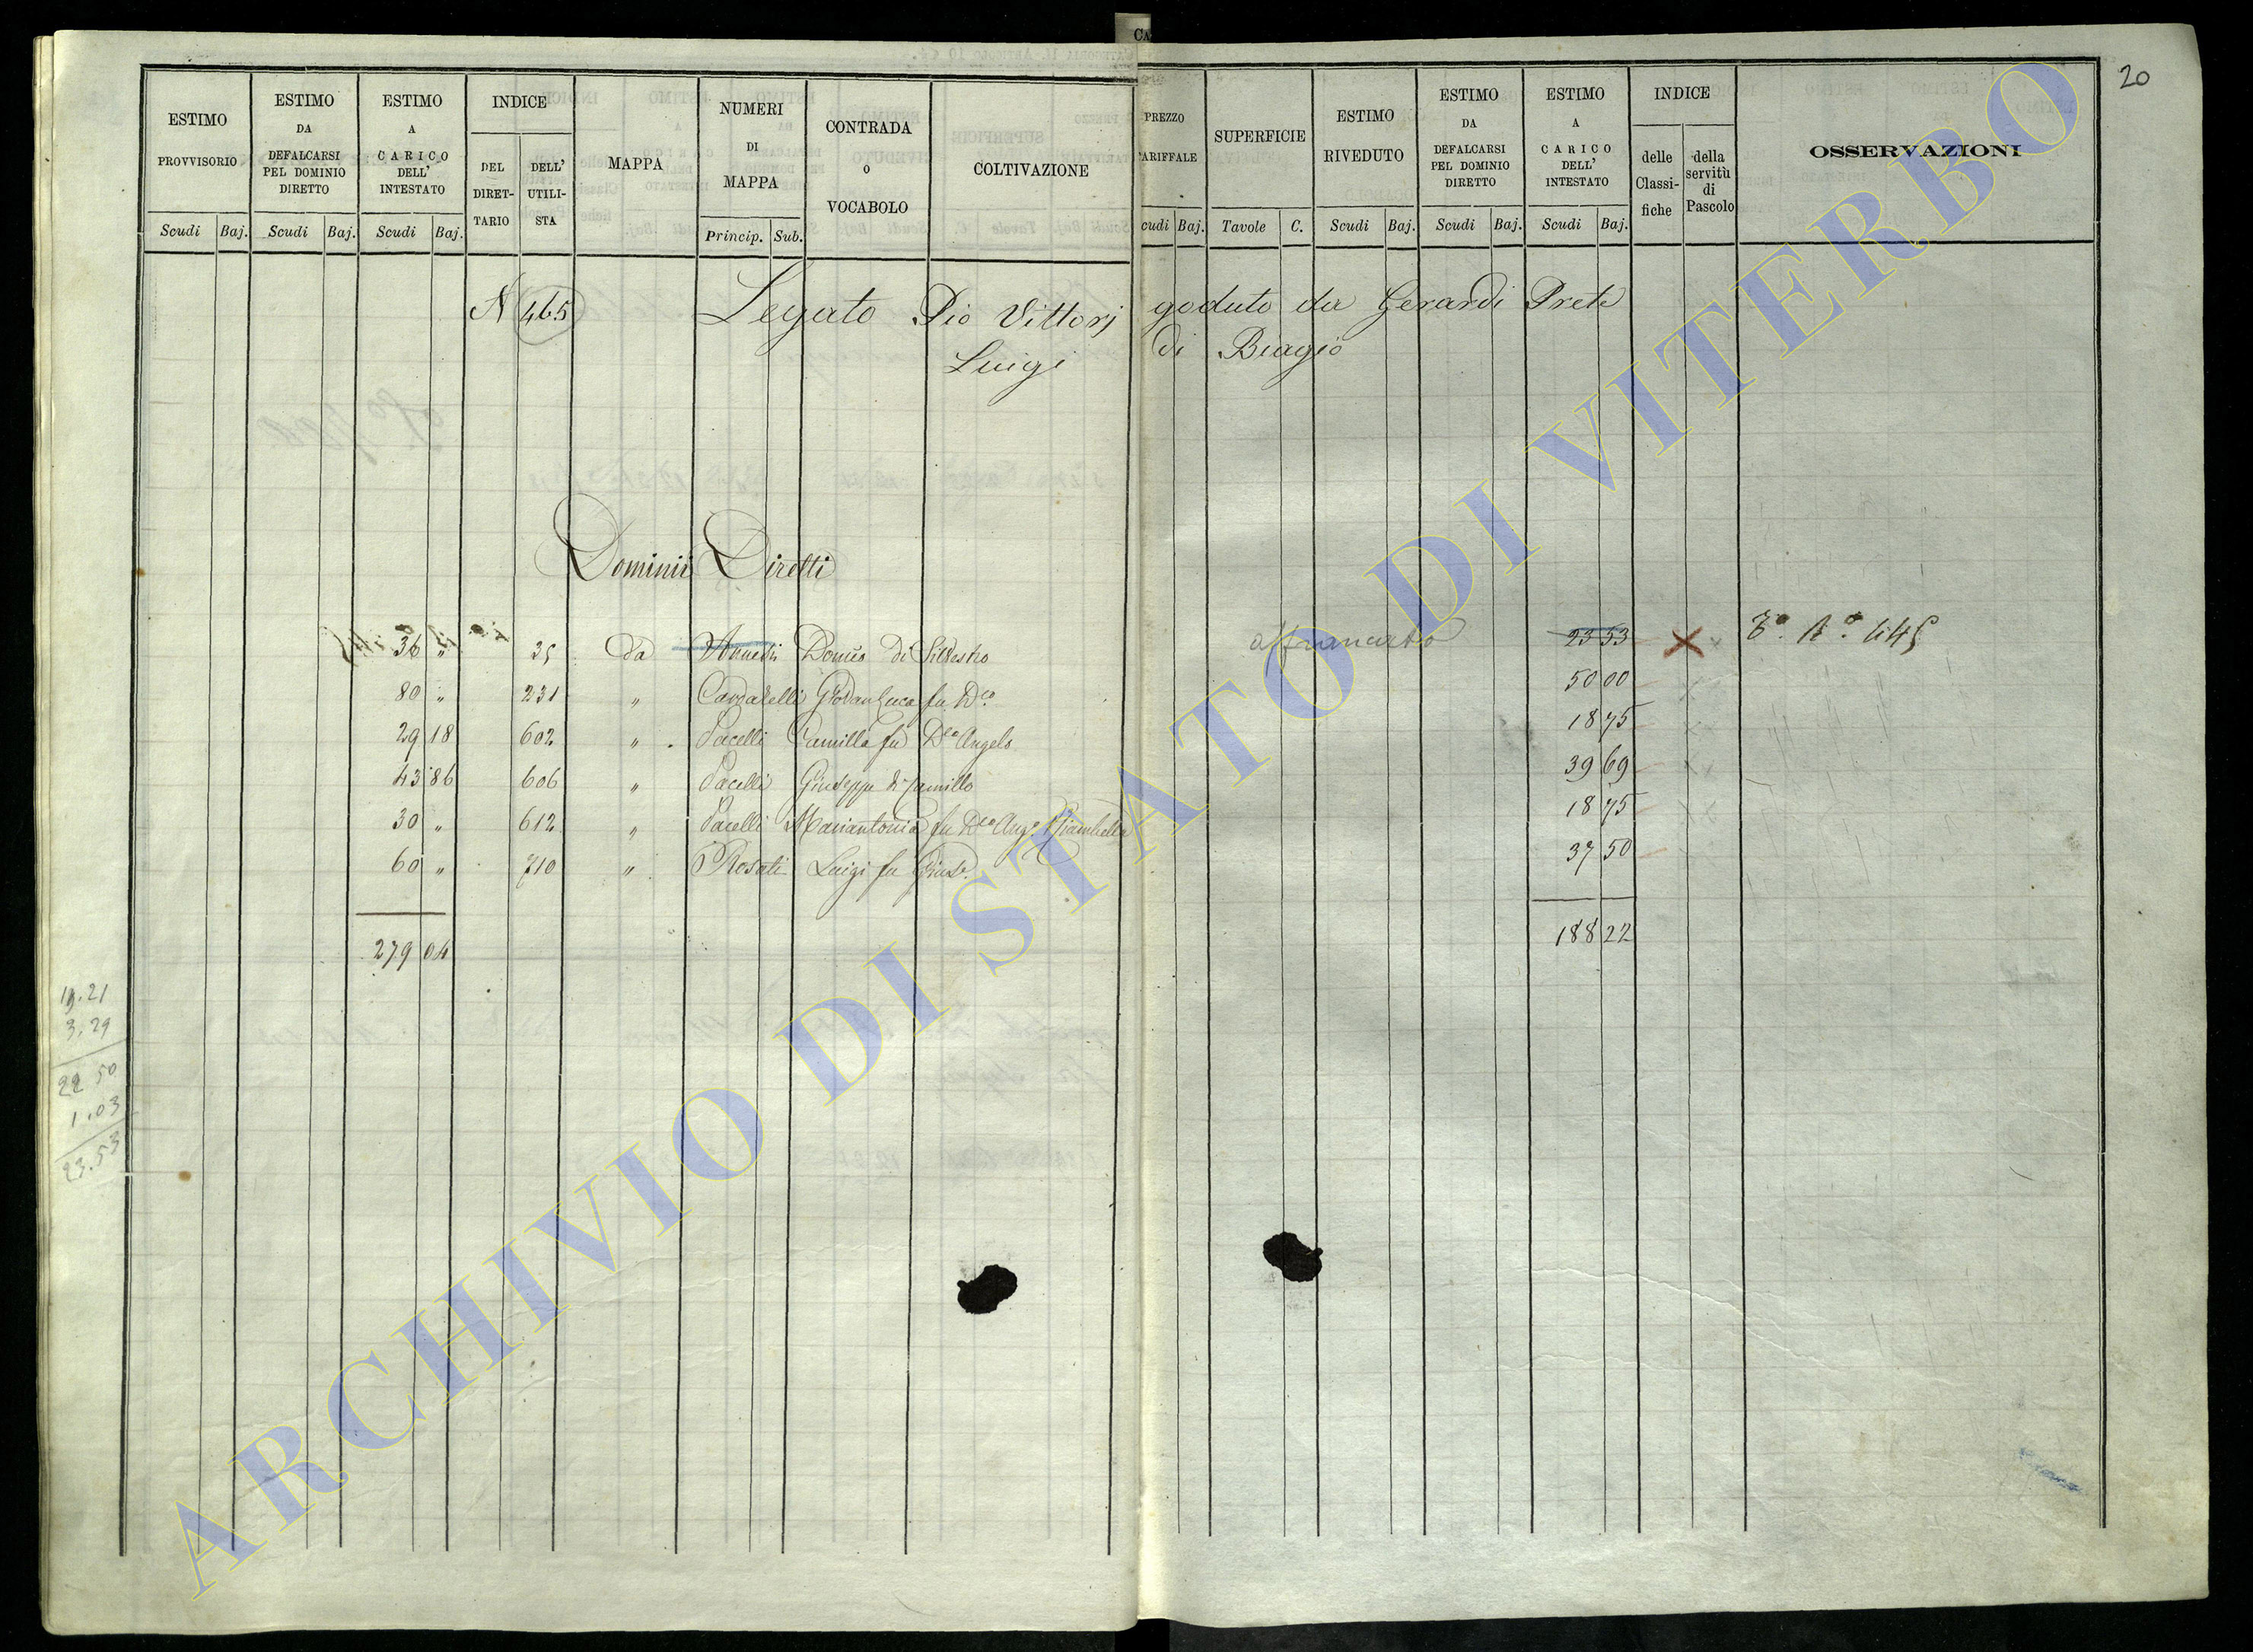 20
ESTIMO PROVVISORIO Scudi Baj.
ESTIMO DA DEFALCARSI PEL DOMINIO DIRETTO Scudi Baj.
ESTIMO A CARICO DELL' INTESTATO Scudi Baj.
INDICE DEL DIRETTARIO DELL' UTILISTA
MAPPA
NUMERI DI MAPPA Princip. Sub.
CONTRADA O VOCABOLO
COLTIVAZIONE
PREZZO TARIFFALE Scudi Baj.
SUPERFICIE Tavole C.
ESTIMO RIVEDUTO Scudi Baj.
ESTIMO DA DEFALCARSI PEL DOMINIO DIRETTO Scudi Baj.
ESTIMO A CARICO DELL' INTESTATO Scudi Baj.
INDICE delle Classifiche della servitù di Pascolo
OSSERVAZIONI
N 465 Legato Pio Vittorj goduto da Gerardi Prete
Luigi di Biagio
Dominii Diretti
36 " 35 da Annedi Domco di Silvestro affrancato 23 53
80 " 231 " Cardarelli Giovan Luca fu Dco 50 00
29 18 602 " Pacelli Camilla fu Dco Angelo 18 75
43 86 606 " Pacelli Giuseppe di Camillo 39 69
30 " 612 " Pacelli Mariantonia fu Dco Ang. 18 75
60 " 710 " Rosati Luigi fu Gius. 37 50
279 04 188 22
3.29
22 50
1.03
23.53
ARCHIVIO DI STATO DI VITERBO